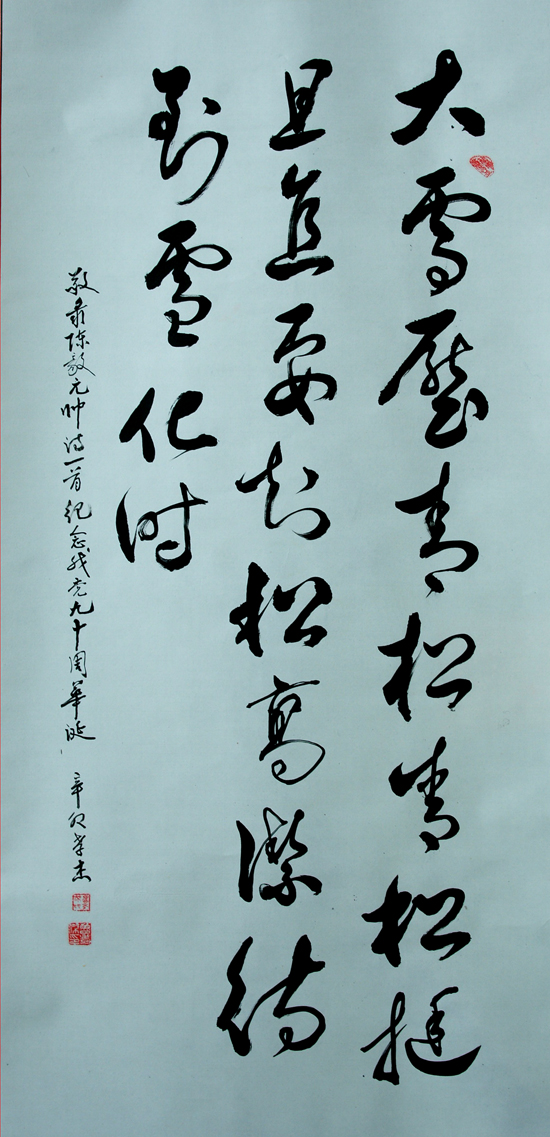 大雪壓青松青松挺
且直要知松高潔待
到雪化时
敬录陈毅元帅诗一首纪念我党九十周華诞 辛卯 杰